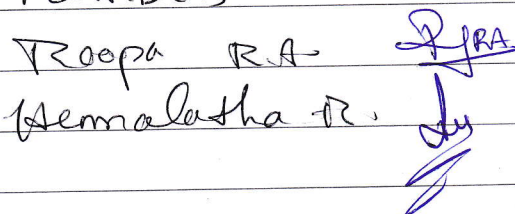 Roopa R.A RJRA
Hemalatha R.